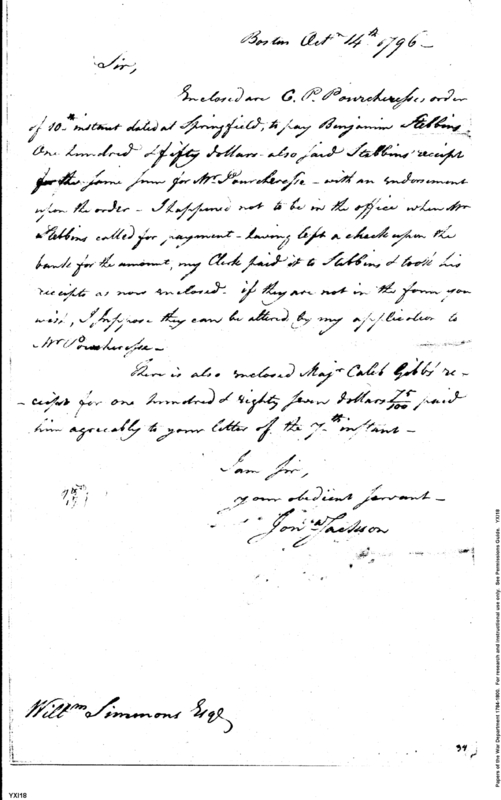 Boston Octr. 14th 1796 —
Sir,
Enclosed are C. P. Pourcheresse's order
of 10th instant dated at Springfield, to pay Benjamin Stebbins
One hundred & fifty dollars also said Stebbins' receipt
for the same sum for Mr. Pourcheresse — with an endorsement
upon the order — I happened not to be in the office when Mr
Stebbins called for payment — having left a check upon the
bank for the amount, my Clerk paid it to Stebbins & took his
receipts as now enclosed. if they are not in the form you
wish, I suppose they can be altered by my application to
Mr Pourcheresse —
There is also enclosed Majr Caleb Gibbs' re-
-ceipt for one hundred & eighty seven dollars 75/100 paid
him agreeably to your letter of the 7th instant —
I am Sir,
your obedient servant —
Jona. Jackson
Willm Simmons Esqr
34
YXI18
Papers of the War Department 1784-1800. For research and instructional use only. See Permissions Guide. YXI18